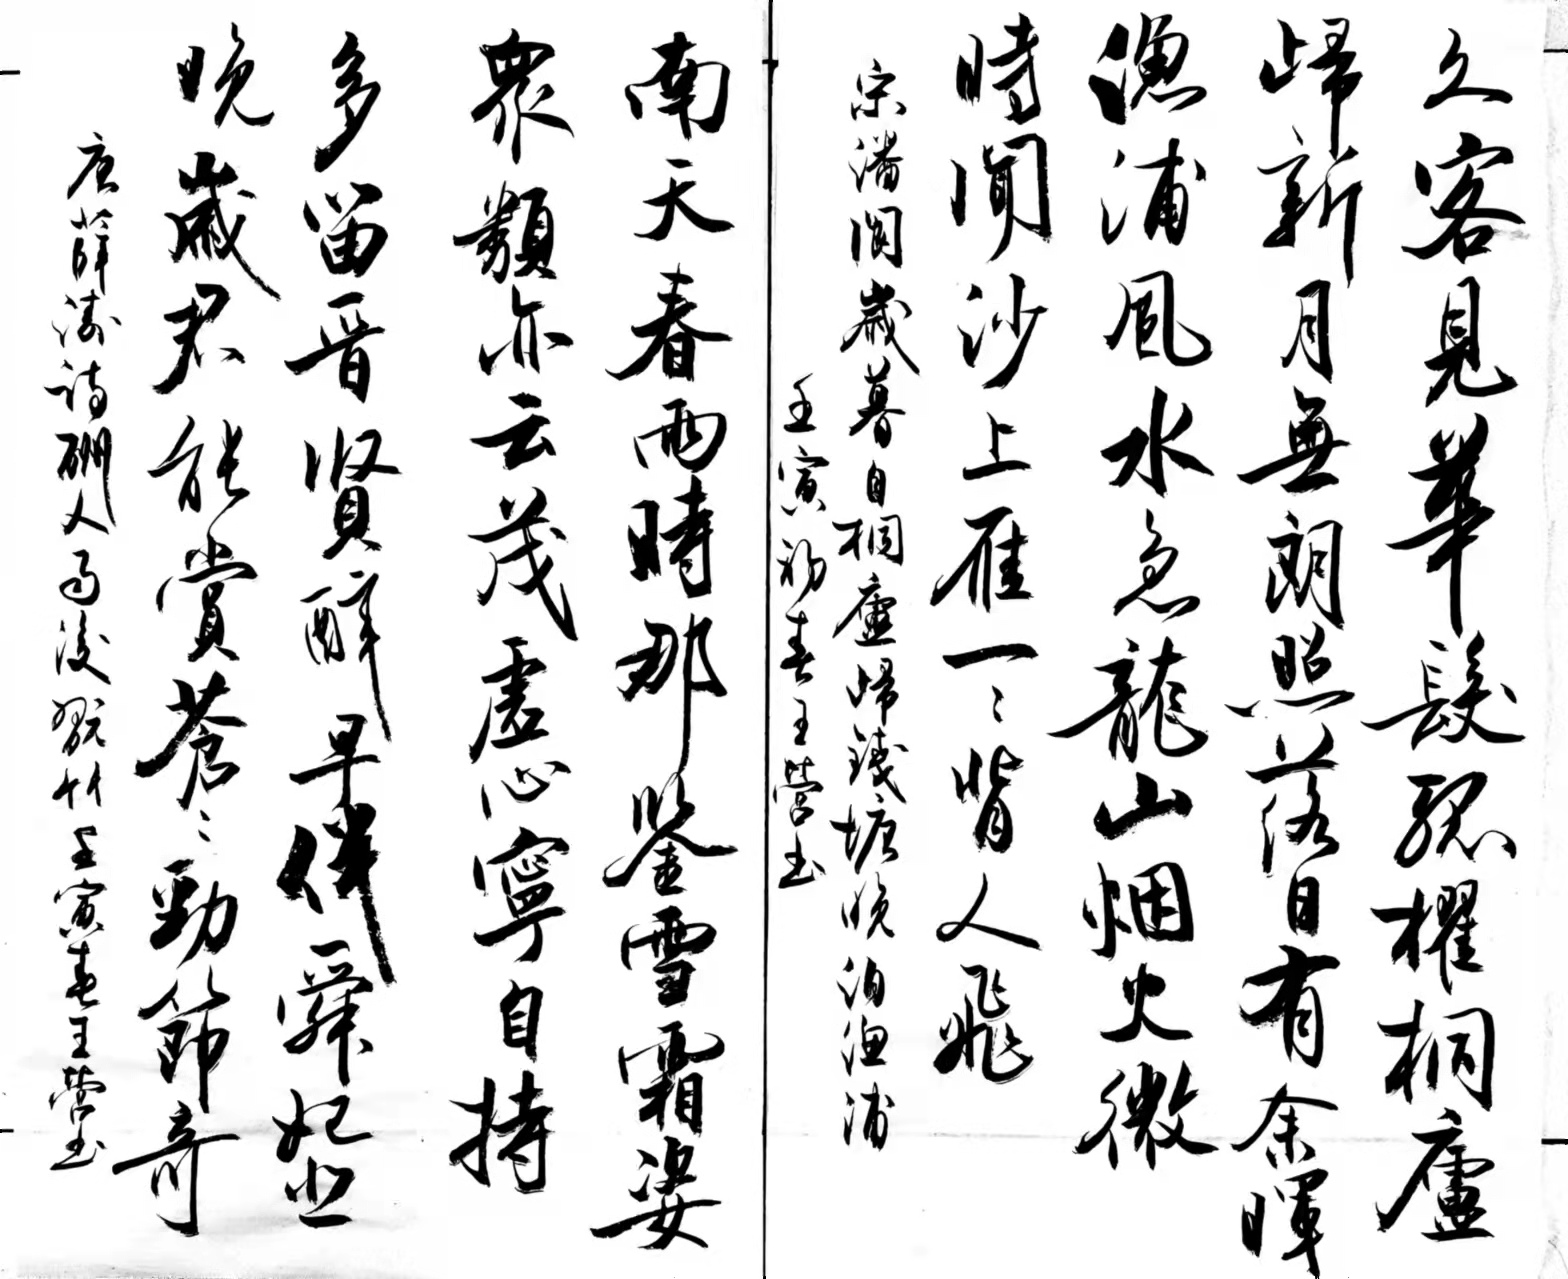 久客見華髮孤櫂桐廬
歸新月無朗照落日有余暉
漁浦風水急龍山烟火微
時聞沙上雁一〻背人飛
宋潘閬歲暮自桐廬歸錢塘晚泊漁浦
壬寅初春王營书
南天春雨時那鑒雪霜姿
眾類亦云茂虛心寧自持
多留晉賢醉早伴舜妃悲
晚歲君能賞蒼〻勁節奇
唐薛濤詩酬人雨後翫竹壬寅春王營书